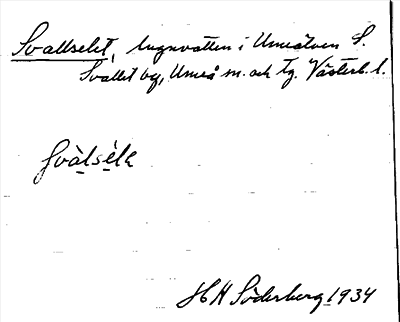 Svallselet, lugnvatten i Umeälven S.
Svallet by, Umeå sn. och tg. Västerb. l.
svàlsèlα
H H Söderberg 1934